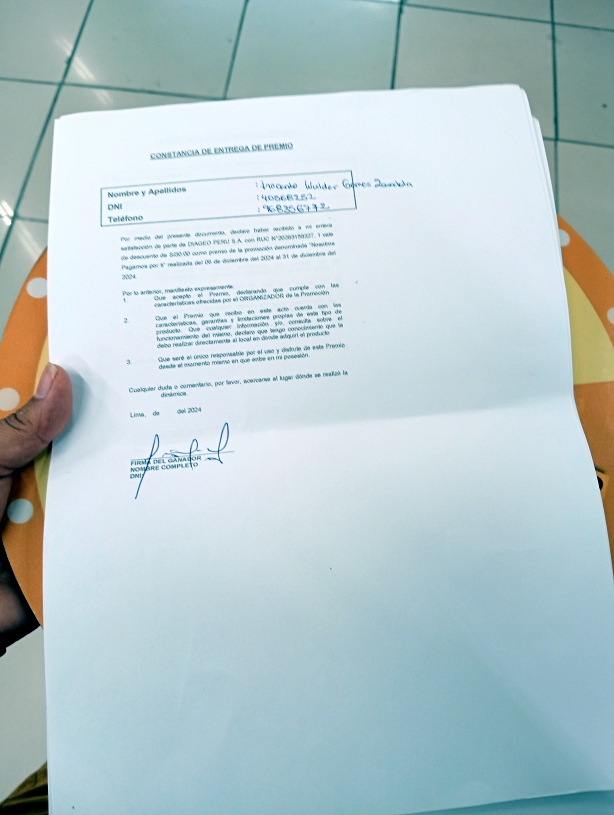 CONSTANCIA DE ENTREGA DE PREMIO
Nombre y Apellidos : Inocente Walder Gomes
DNI : 40868252
Teléfono : 968356772
Por medio del presente documento, declaro haber recibido a mi entera
satisfacción de parte de DIAGEO PERÚ S.A. con RUC N°20263158327, 1 vale
de descuento de S/30.00 como premio de la promoción denominada "Nosotros
Pagamos por ti" realizada del 06 de diciembre del 2024 al 31 de diciembre del
2024.
Por lo anterior, manifiesto expresamente:
1. Que acepto el Premio, declarando que cumple con las
características ofrecidas por el ORGANIZADOR de la Promoción
2. Que el Premio que recibo en este acto cuenta con las
características, garantías y limitaciones propias de este tipo de
producto. Que cualquier información y/o consulta sobre el
funcionamiento del mismo, declaro que tengo conocimiento que la
debo realizar directamente al local en donde adquirí el producto.
3. Que seré el único responsable por el uso y disfrute de este Premio
desde el momento mismo en que entre en mi posesión.
Cualquier duda o comentario, por favor, acercarse al lugar dónde se realizó la
dinámica.
Lima, de del 2024
FIRMA DEL GANADOR
NOMBRE COMPLETO
DNI